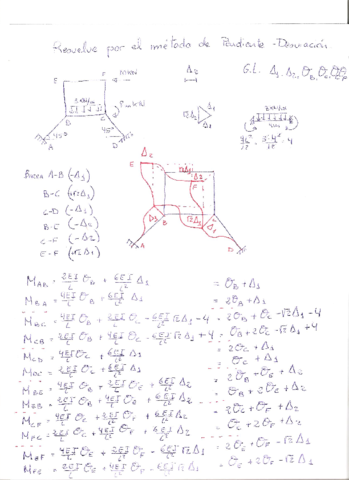 Resuelve por el método de Pendiente-Desviación
G.L. Δ1, Δ2, θB, θC, θE, θF
E F
Δ2
3kN/m
B C
45° 45°
A D
√2Δ1 Δ1
3kN/m
4m
wL²/12 = 3·4²/12 = 4
Barra A-B (-Δ1)
B-C (√2Δ1)
C-D (-Δ1)
B-E (-Δ2)
C-F (-Δ2)
E-F (√2Δ1)
Δ2
E
Δ2
F
B
A D
MAB = 2EI/L θB + 6EI/L² Δ1 = θB + Δ1
MBA = 4EI/L θB + 6EI/L² Δ1 = 2θB + Δ1
MBC = 4EI/L θB + 2EI/L θC - 6EI/L² √2Δ1 - 4 = 2θB + θC - √2Δ1 - 4
MCB = 2EI/L θB + 4EI/L θC - 6EI/L² √2Δ1 + 4 = θB + 2θC - √2Δ1 + 4
MCD = 4EI/L θC + 6EI/L² Δ1 = 2θC + Δ1
MDC = 2EI/L θC + 6EI/L² Δ1 = θC + Δ1
MBE = 4EI/L θB + 2EI/L θE + 6EI/L² Δ2 = 2θB + θE + Δ2
MEB = 2EI/L θB + 4EI/L θE + 6EI/L² Δ2 = θB + 2θE + Δ2
MCF = 4EI/L θC + 2EI/L θF + 6EI/L² Δ2 = 2θC + θF + Δ2
MFC = 2EI/L θC + 4EI/L θF + 6EI/L² Δ2 = θC + 2θF + Δ2
MEF = 4EI/L θE + 2EI/L θF - 6EI/L² √2Δ1 = 2θE + θF - √2Δ1
MFE = 2EI/L θE + 4EI/L θF - 6EI/L² √2Δ1 = θE + 2θF - √2Δ1